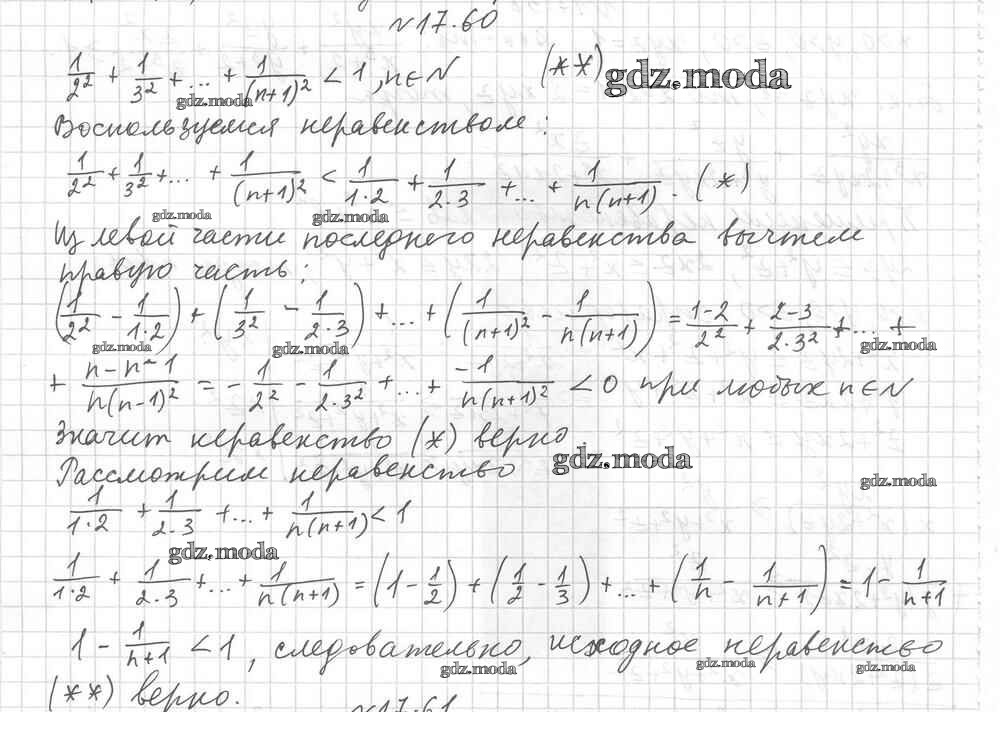 №17.60
1/2² + 1/3² + ... + 1/(n+1)² < 1, n∈N (**) gdz.moda
gdz.moda
Воспользуемся неравенством:
1/2² + 1/3² + ... + 1/(n+1)² < 1/(1·2) + 1/(2·3) + ... + 1/(n(n+1)). (*)
gdz.moda gdz.moda
Из левой части последнего неравенства вычтем
правую часть:
(1/2² - 1/(1·2)) + (1/3² - 1/(2·3)) + ... + (1/(n+1)² - 1/(n(n+1))) = (1-2)/2² + (2-3)/(2·3²) + ... +
gdz.moda gdz.moda gdz.moda
+ (n-n-1)/(n(n-1)²) = - 1/2² - 1/(2·3²) + ... + -1/(n(n+1)²) < 0 при любых n∈N
Значит неравенство (*) верно.
gdz.moda
Рассмотрим неравенство
gdz.moda
1/(1·2) + 1/(2·3) + ... + 1/(n(n+1)) < 1
gdz.moda
1/(1·2) + 1/(2·3) + ... + 1/(n(n+1)) = (1 - 1/2) + (1/2 - 1/3) + ... + (1/n - 1/(n+1)) = 1 - 1/(n+1)
1 - 1/(n+1) < 1, следовательно, исходное неравенство
gdz.moda gdz.moda gdz.moda
(**) верно.
№17.61